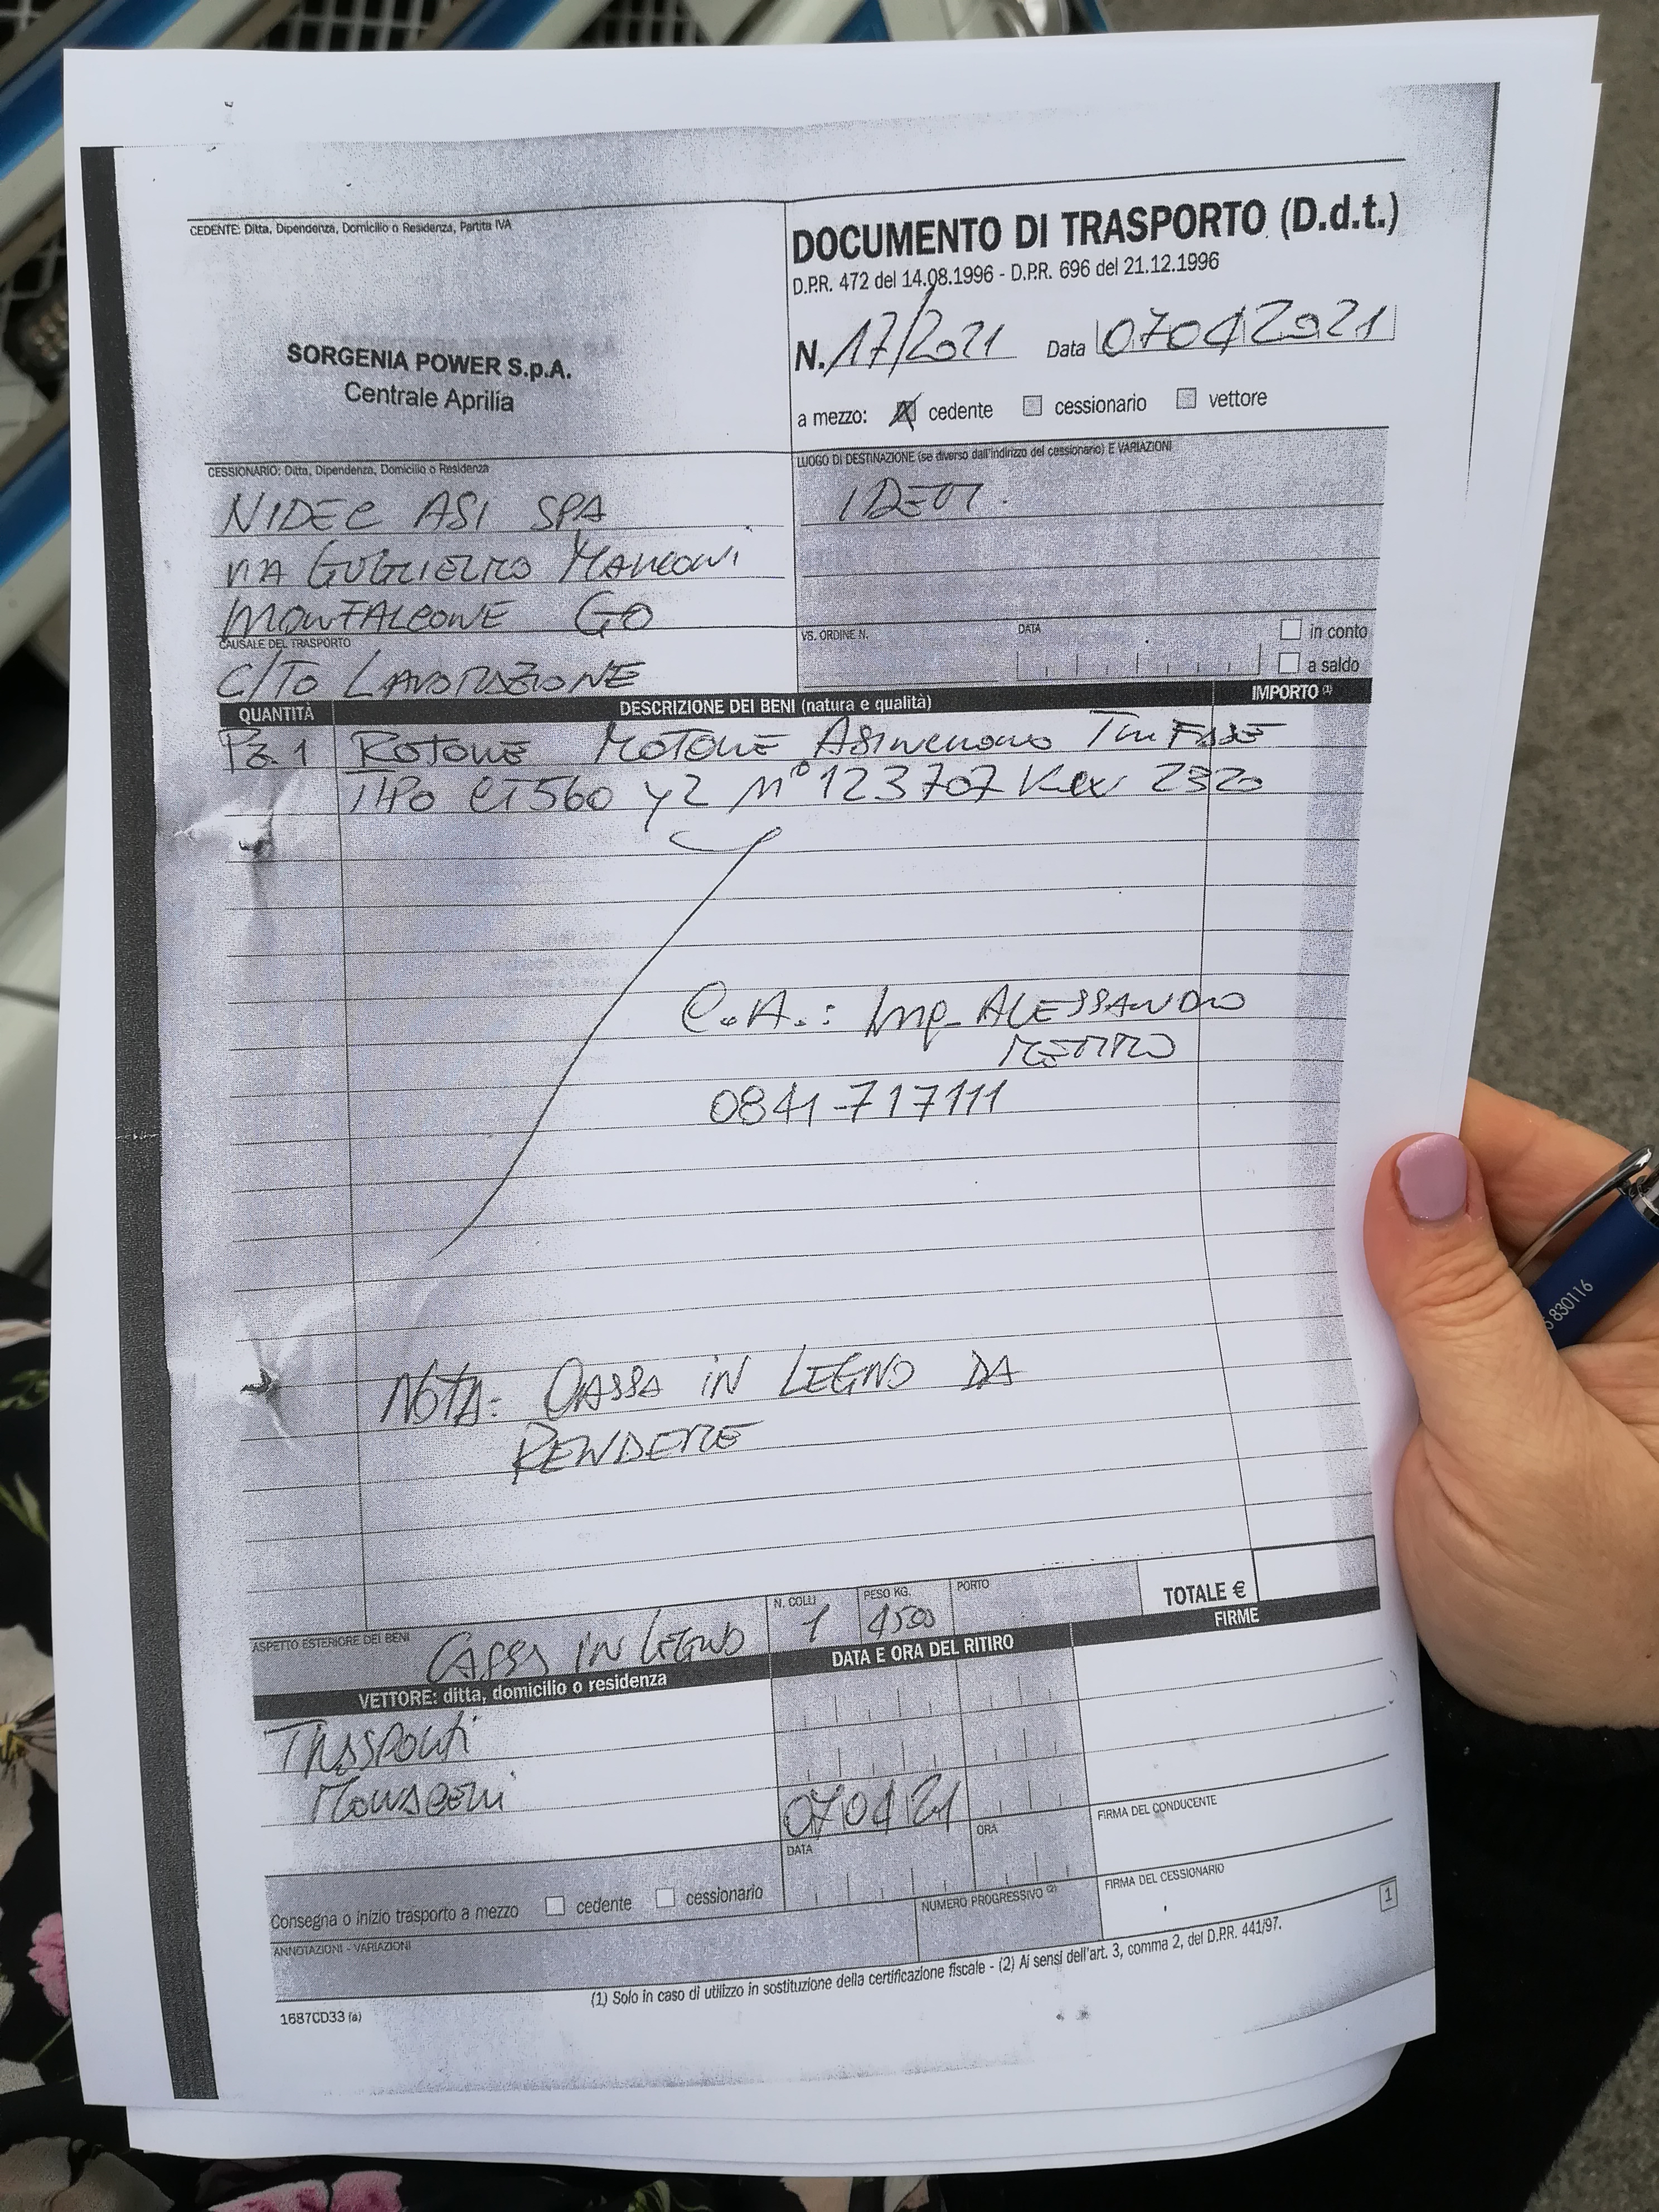 CEDENTE: Ditta, Dipendenza, Domicilio o Residenza, Partita IVA
SORGENIA POWER S.p.A.
Centrale Aprilia
DOCUMENTO DI TRASPORTO (D.d.t.)
D.P.R. 472 del 14.08.1996 - D.P.R. 696 del 21.12.1996
N. 17/2021 Data 07042021
a mezzo: cedente cessionario vettore
CESSIONARIO: Ditta, Dipendenza, Domicilio o Residenza
NIDEC ASI SPA
VIA GUGLIELMO MARCONI
MONFALCONE GO
LUOGO DI DESTINAZIONE (se diverso dall'indirizzo del cessionario) E VARIAZIONI
IDEM.
CAUSALE DEL TRASPORTO
C/TO LAVORAZIONE
VS. ORDINE N. DATA in conto
a saldo
QUANTITÀ DESCRIZIONE DEI BENI (natura e qualità) IMPORTO (1)
Pz. 1 ROTORE MOTORE ASINCRONO TRIFASE
TIPO CT560 Y2 N° 123707 2320
C.A.: ALESSANDRO
0841-717111
NOTA: CASSA IN LEGNO DA
RENDERE
ASPETTO ESTERIORE DEI BENI CASSA IN LEGNO N. COLLI 1 PESO KG. 4500 PORTO TOTALE €
VETTORE: ditta, domicilio o residenza DATA E ORA DEL RITIRO FIRME
TRASPORTI
070421
DATA ORA FIRMA DEL CONDUCENTE
Consegna o inizio trasporto a mezzo cedente cessionario
ANNOTAZIONI - VARIAZIONI NUMERO PROGRESSIVO (2) FIRMA DEL CESSIONARIO
1
(1) Solo in caso di utilizzo in sostituzione della certificazione fiscale - (2) Ai sensi dell'art. 3, comma 2, del D.P.R. 441/97.
1687CD33 (a)
830116